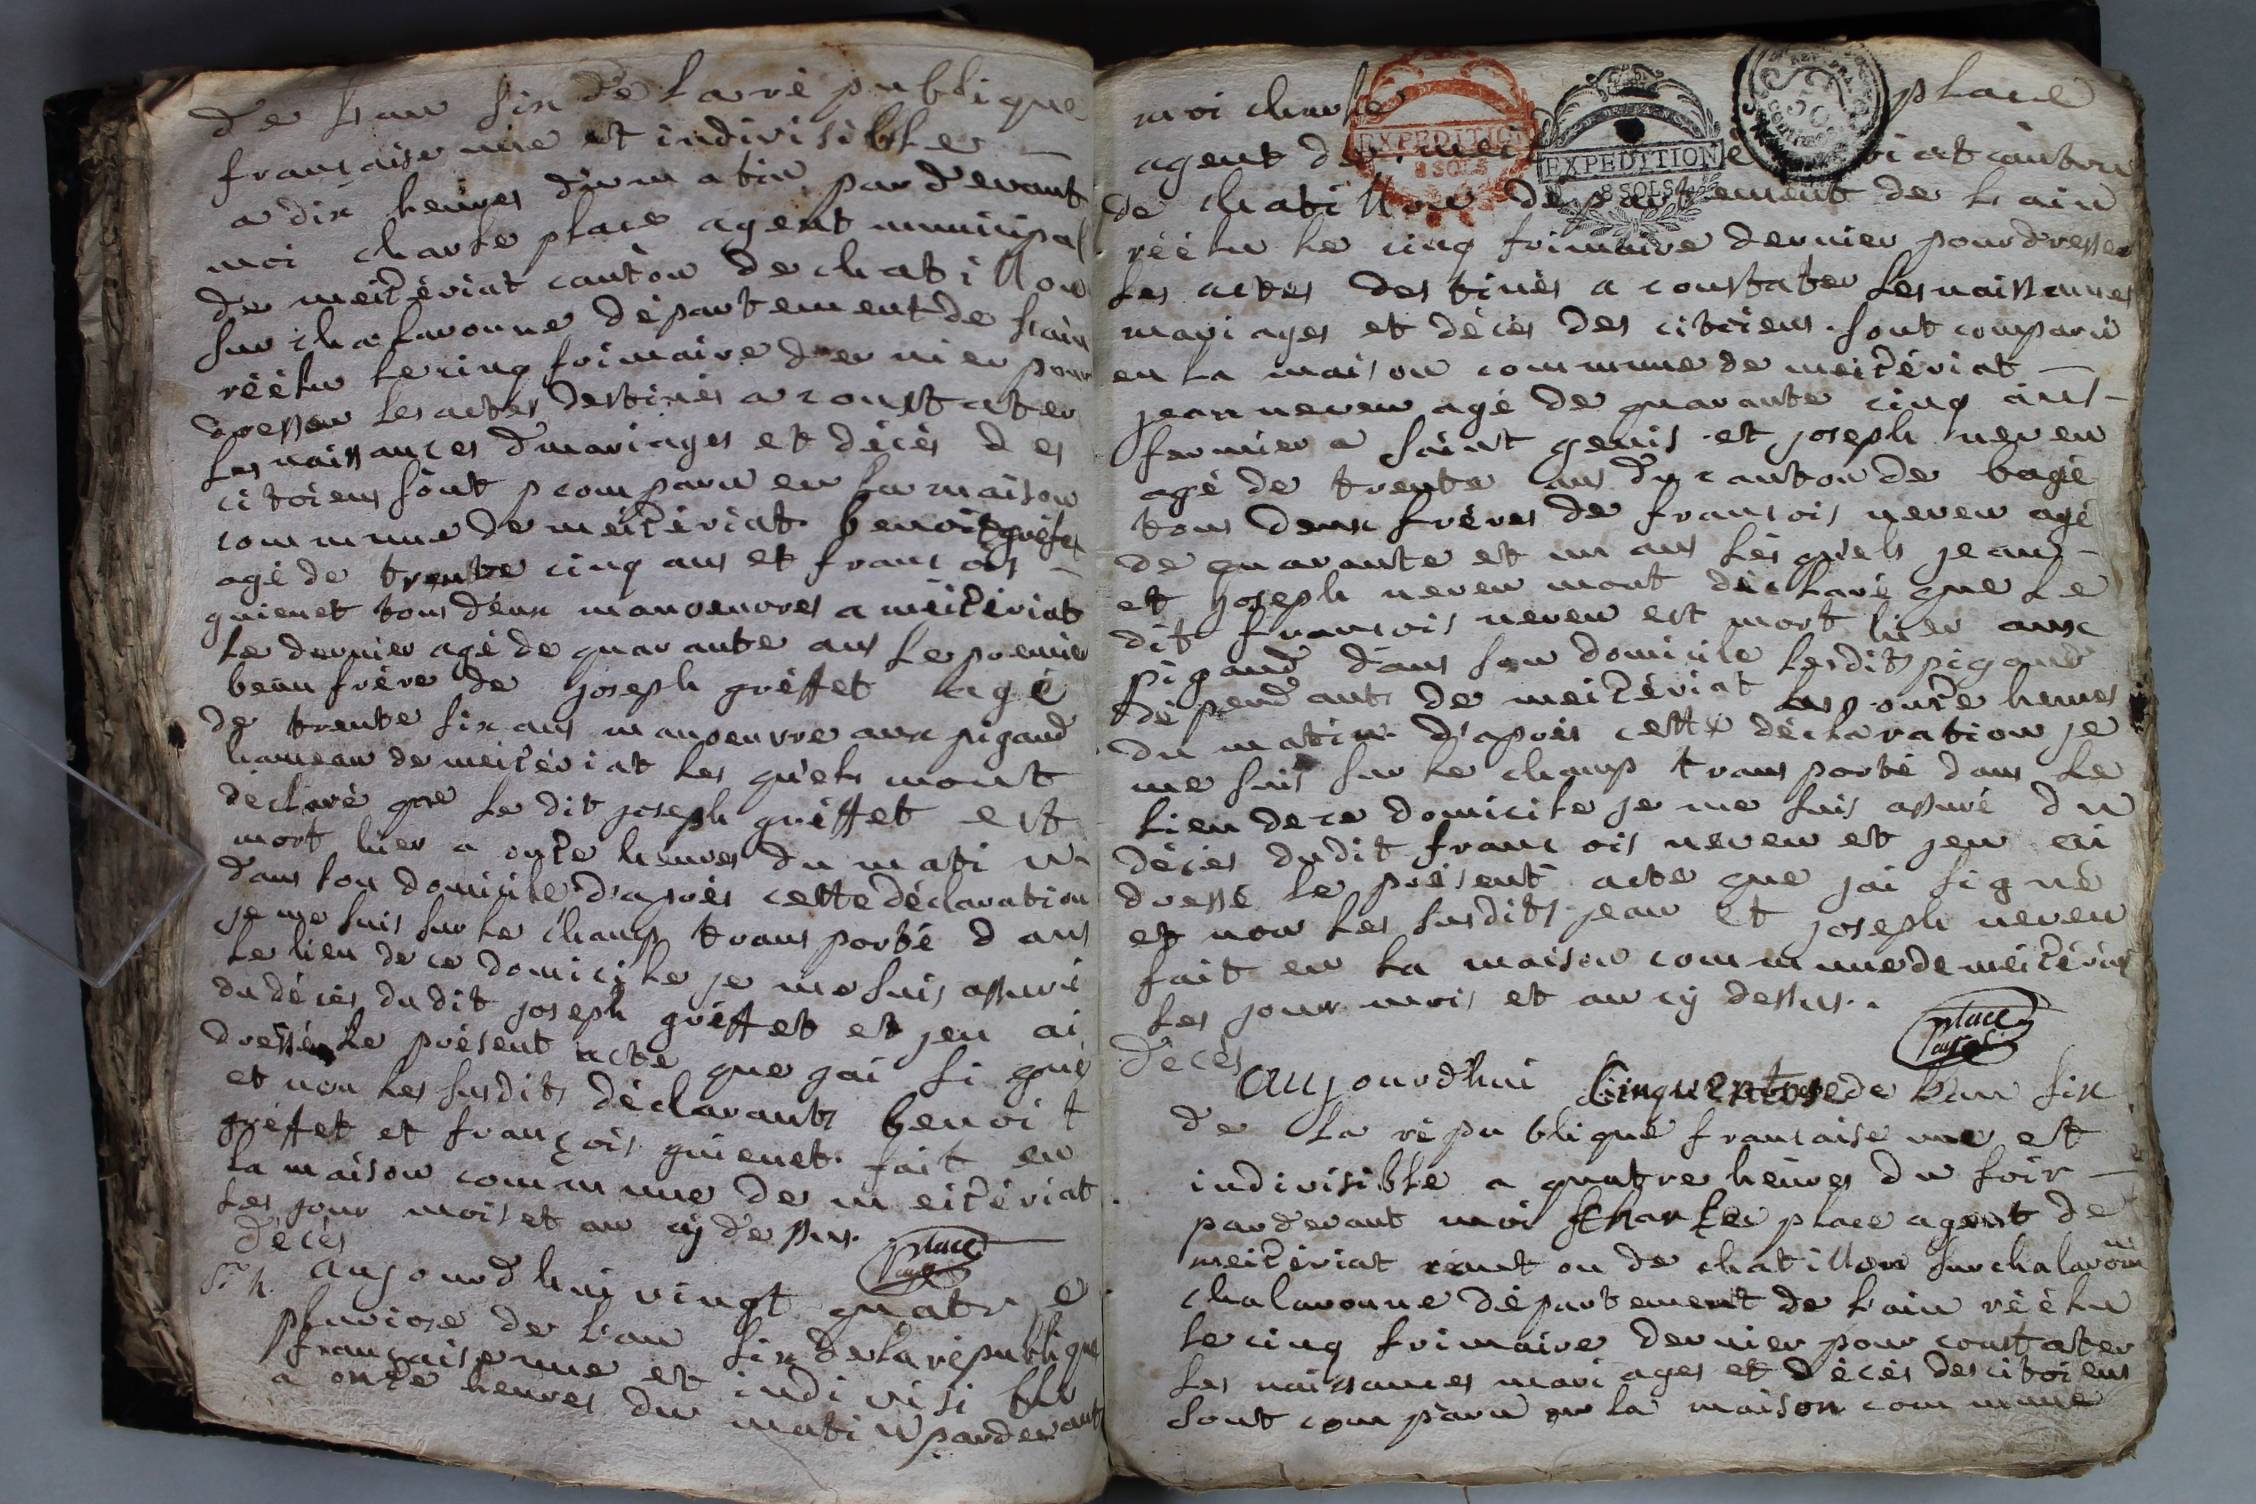 de l'an six de la ré publique
francaise une et indivisible
a dix heures du matin par devant
moi charle place agent municipal
de meizériat canton de chatillon
sur chalaronne département de l'ain
réélu le cinq frimaire dernier pour
dresser les actes destinés a constater
les naissances d mariages et décès des
citoiens sont p comparu en la maison
commune de meizériat benoit gréfet
agé de trente cinq ans et francois
guienet tous deux manoeuvres a meizériat
le dernier agé de quarante ans le premier
beau frére de joseph gréffet agé
de trente six ans manoeuvre aux pigand
hameau de meizériat les quels mont
déclaré que le dit joseph gréffet est
mort hier a onze heures du matin
dans son domicile d'aprés cette déclaration
je me suis sur le champ trans porté dans
le lieu de ce domicile je me suis assuré
du décés du dit joseph gréffet et jen ai
dressé le présent acte que jai si gné
et non les susdits déclarants benoit
gréffet et françois guienet fait en
la maison commune de meizériat
les jour mois et an cÿ dessus.
place
décés
aujourd hui vingt quatre
pluviose de l'an six de la république
francaise une et indi visi ble
a onze heures du matin par devant
moi charle place
EXPEDITION
8 SOLS
EXPEDITION
8 SOLS
agent de canton
de chatillon département de l'ain
réélu le cinq frimaire dernier pour dresser
les actes destinés a constater les naissances
mariages et décés des citoiens sont comparu
en la maison commune de meizériat
jean neveu agé de quarante cinq ans
fermier a saint genis et joseph neveu
agé de trente ans du canton de bagé
tous deux fréres de francois neveu agé
de quarante et un ans lésquels jean
et joseph neveu mont déclaré que le
dit francois neveu est mort hier aux
pigand dans son domicile lesdits pigand
dépendants de meizériat onze heures
du matin d'aprés cette déclaration je
me suis sur le champ trans porté dans le
lieu de ce domicile je me suis assuré du
décés dudit francois neveu et jen ai
dressé le présent acte que jai signé
et non les susdits jean et joseph neveu
fait en la maison commune de meizériat
les jour mois et an cÿ dessus.
place
décés
aujourdhui de l'an six
de la ré publique francaise une et
indivisible a quatre heures du soir
pardevant moi charles place agent de
meizériat canton de chatillon sur chalaronne
chalaronne département de l'ain réélu
le cinq frimaire dernier pour constater
les naissances mariages et décés des citoiens
sont comparu en la maison commune